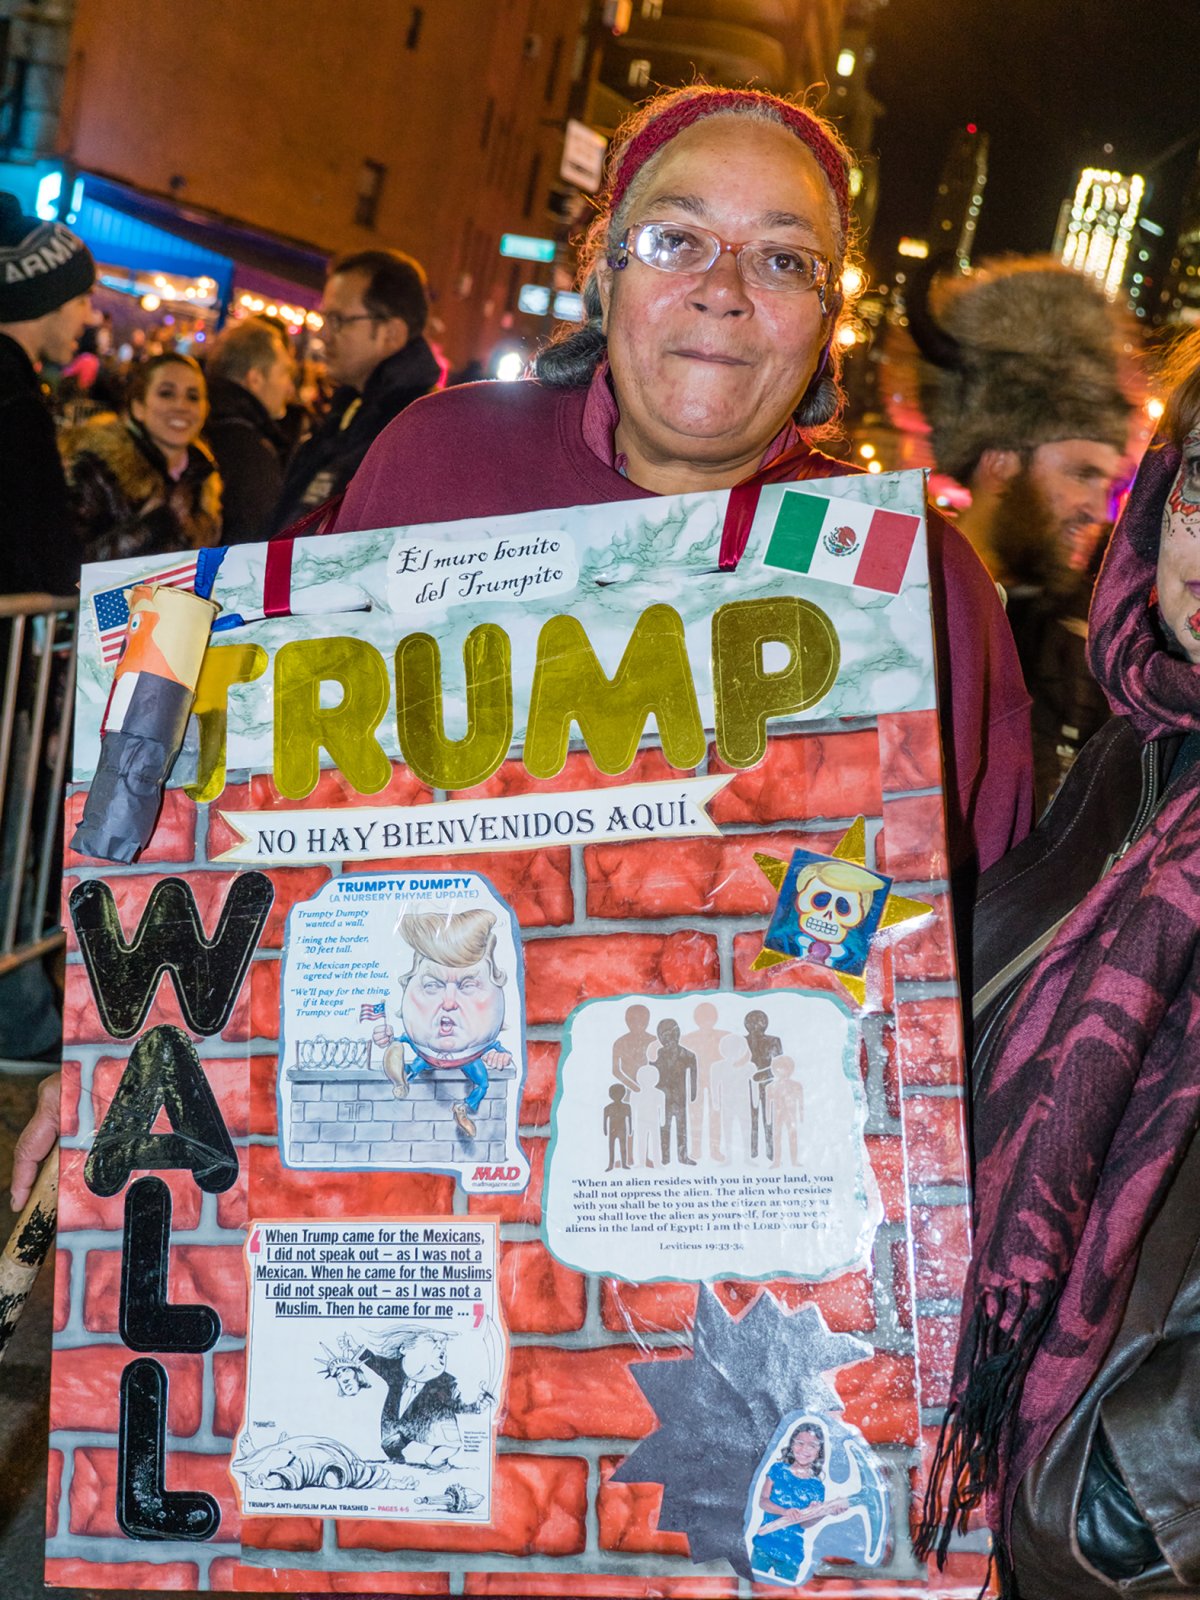 ARMO
El muro bonito
del Trumpito
TRUMP
NO HAY BIENVENIDOS AQUÍ.
WALL
TRUMPTY DUMPTY
(A NURSERY RHYME UPDATE)
Trumpty Dumpty
wanted a wall,
Lining the border,
20 feet tall.
The Mexican people
agreed with the lout,
"We'll pay for the thing,
if it keeps
Trumpty out!"
MAD
madmagazine.com
"When an alien resides with you in your land, you
shall not oppress the alien. The alien who resides
with you shall be to you as the citizen among you
you shall love the alien as yourself, for you were
aliens in the land of Egypt: I am the LORD your God."
Leviticus 19:33-34
When Trump came for the Mexicans,
I did not speak out – as I was not a
Mexican. When he came for the Muslims
I did not speak out – as I was not a
Muslim. Then he came for me ...
TRUMP'S ANTI-MUSLIM PLAN TRASHED – PAGES 4-5